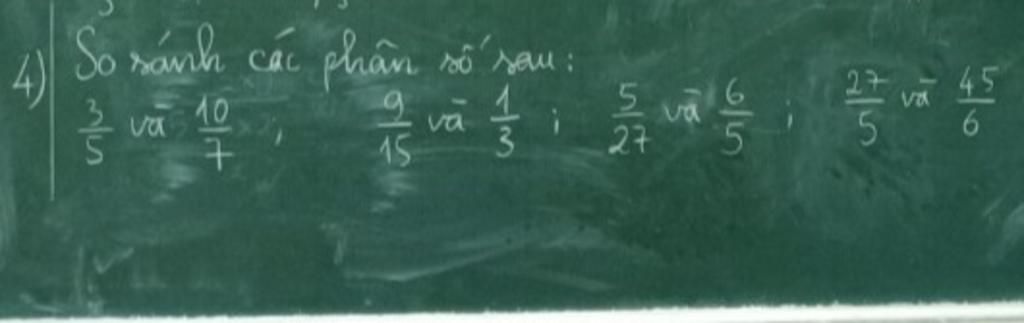 4) So sánh các phân số sau:
3/5 và 10/7 ; 9/15 và 1/3 ; 5/27 và 6/5 ; 27/5 và 45/6